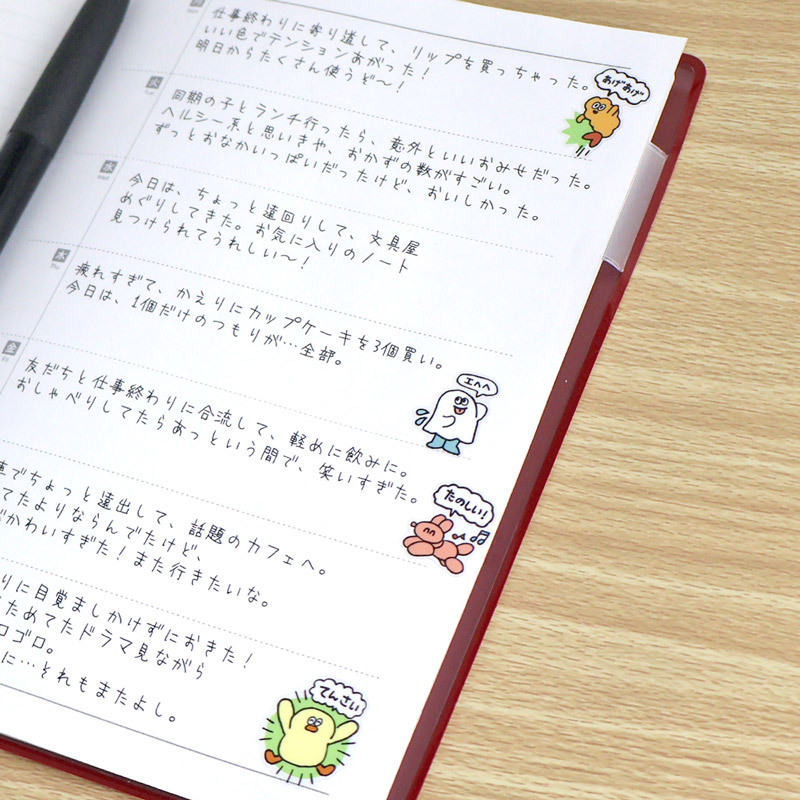 月
仕事終わりに寄り道して、リップを買っちゃった。
いい色でテンションあがった！
明日からたくさん使うど〜！
あげあげ
火
Tue
同期の子とランチ行ったら、意外といいおみせだった。
ヘルシー系と思いきや、おかずの数がすごい。
ずっとおなかいっぱいだったけど、おいしかった。
水
Wed
今日は、ちょっと遠回りして、文具屋
めぐりしてきた。お気に入りのノート
見つけられてうれしい〜！
木
Thu
疲れすぎて、かえりにカップケーキを3個買い。
今日は、1個だけのつもりが…全部。
エヘヘ
金
Fri
友だちと仕事終わりに合流して、軽めに飲みに。
おしゃべりしてたらあっという間で、笑いすぎた。
たのしい！
でちょっと遠出して、話題のカフェへ。
てたよりならんでたけど、
がかわいすぎた！また行きたいな。
りに目覚ましかけずにおきた！
ためてたドラマ見ながら
ロゴロ。
に…それもまたよし。
てんさい